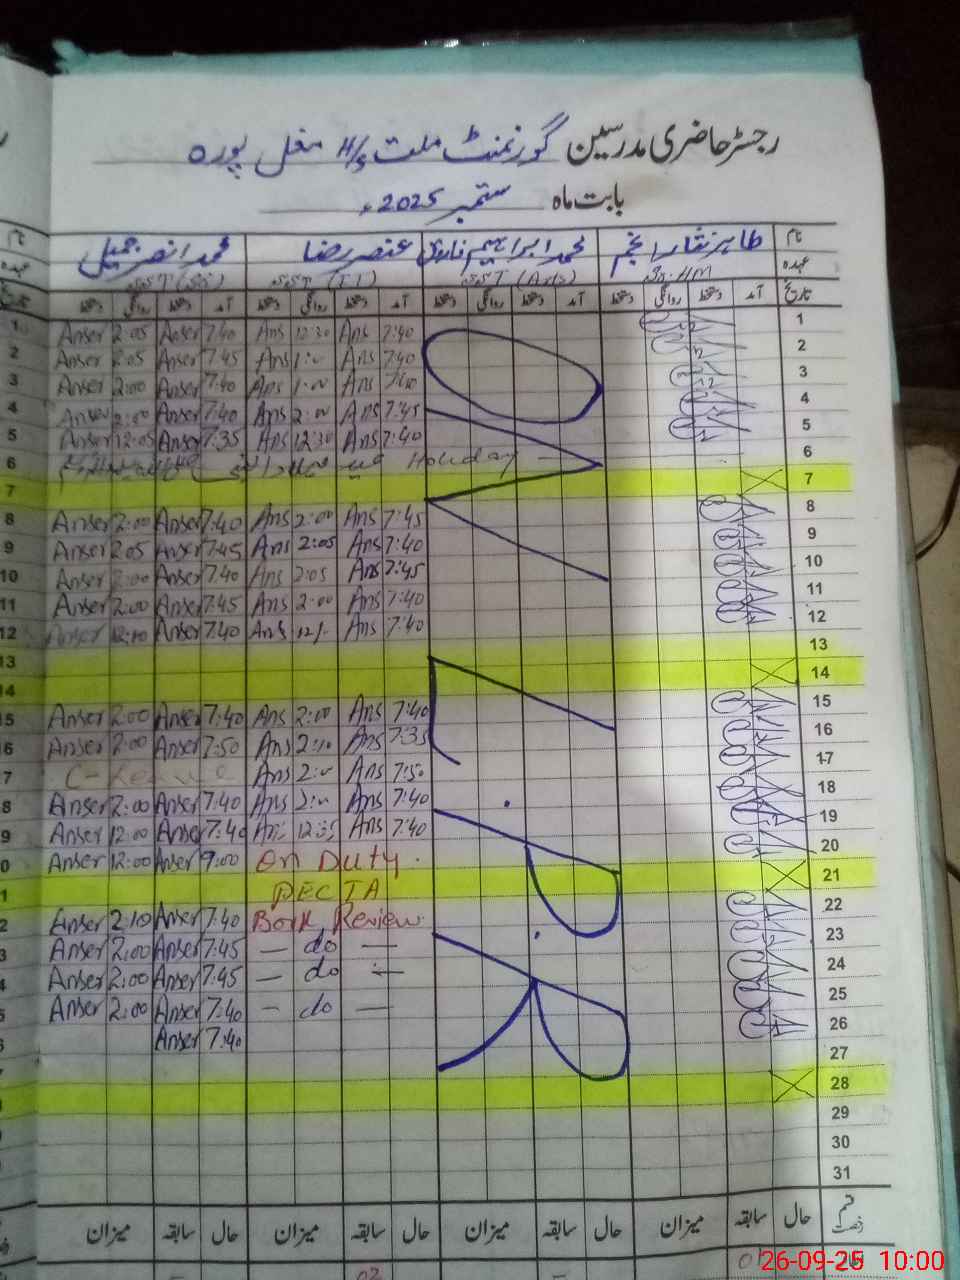 رجسٹر حاضری مدرسین گورنمنٹ ملت H/S مغل پورہ
بابت ماہ ستمبر 2025ء
نام طاہر نثار انجم محمد ابراہیم عنصر رضا محمد انصر جمیل
عہدہ Sr. HM SST (Arts) SST (IT) SST
تاریخ آمد دستخط روانگی دستخط آمد دستخط روانگی دستخط آمد دستخط روانگی دستخط آمد دستخط روانگی دستخط
1 7:40 Ans 12:30 Ans 7:40 Anser 2:05 Anser
2 7:40 Ans 1:00 Ans 7:45 Anser 2:05 Anser
3 7:40 Ans 1:00 Ans 7:40 Anser 2:00 Anser
4 7:45 Ans 2:00 Ans 7:40 Anser 2:00 Anser
5 7:40 Ans 12:30 Ans 7:35 Anser 12:05 Anser
6 Holiday عید میلاد النبی
7
8 7:45 Ans 2:00 Ans 7:40 Anser 2:00 Anser
9 7:40 Ans 2:05 Ans 7:45 Anser 2:05 Anser
10 7:45 Ans 2:05 Ans 7:40 Anser 2:00 Anser
11 7:40 Ans 2:00 Ans 7:45 Anser 2:00 Anser
12 7:40 Ans 12/- Ans 7:40 Anser 12:10 Anser
13
14
15 7:40 Ans 2:00 Ans 7:40 Anser 2:00 Anser
16 7:35 Ans 2:10 Ans 7:50 Anser 2:00 Anser
17 7:50 Ans 2:00 Ans C-Leave
18 7:40 Ans 2:00 Ans 7:40 Anser 2:00 Anser
19 7:40 Ans 12:35 Ans 7:40 Anser 12:00 Anser
20 On Duty 9:00 Anser 12:00 Anser
21 PECTA
22 Book Review 7:40 Anser 2:10 Anser
23 — do — 7:45 Anser 2:00 Anser
24 — do — 7:45 Anser 2:00 Anser
25 — do — 7:40 Anser 2:00 Anser
26 7:40 Anser
27
28
29
30
31
قسم رخصت حال سابقہ میزان حال سابقہ میزان حال سابقہ میزان حال سابقہ میزان
02
26-09-25 10:00